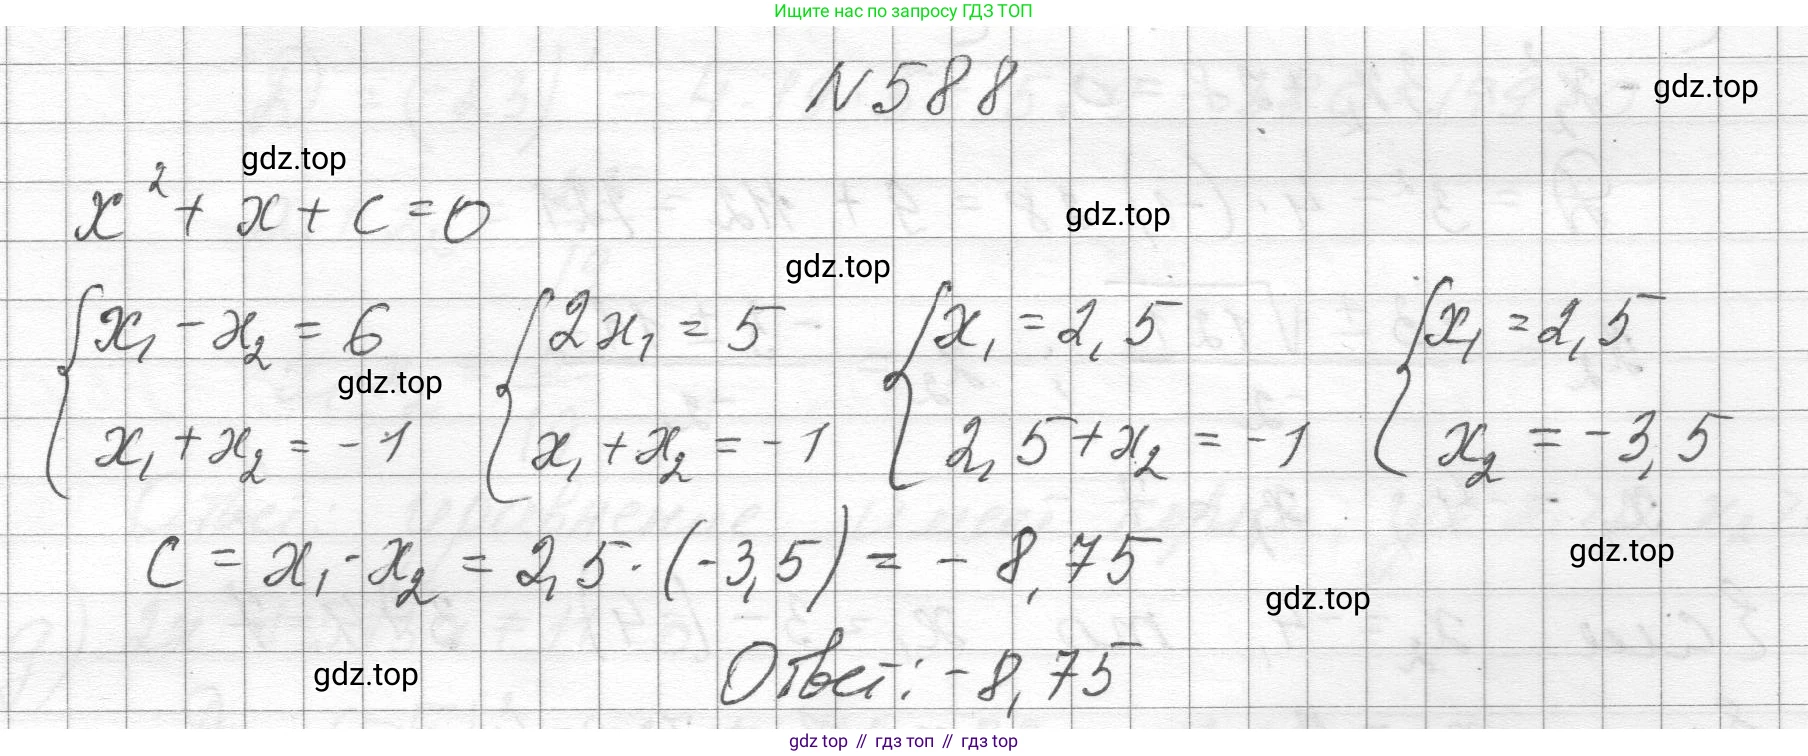 Ищите нас по запросу ГДЗ ТОП
N588
gdz.top
gdz.top
x² + x + c = 0
gdz.top
gdz.top
{ x₁ - x₂ = 6 { 2x₁ = 5 { x₁ = 2,5 { x₁ = 2,5
gdz.top
x₁ + x₂ = -1 x₁ + x₂ = -1 2,5 + x₂ = -1 x₂ = -3,5
c = x₁ · x₂ = 2,5 · (-3,5) = - 8,75
gdz.top
gdz.top
Ответ: -8,75
gdz.top
gdz top // гдз топ // гдз top